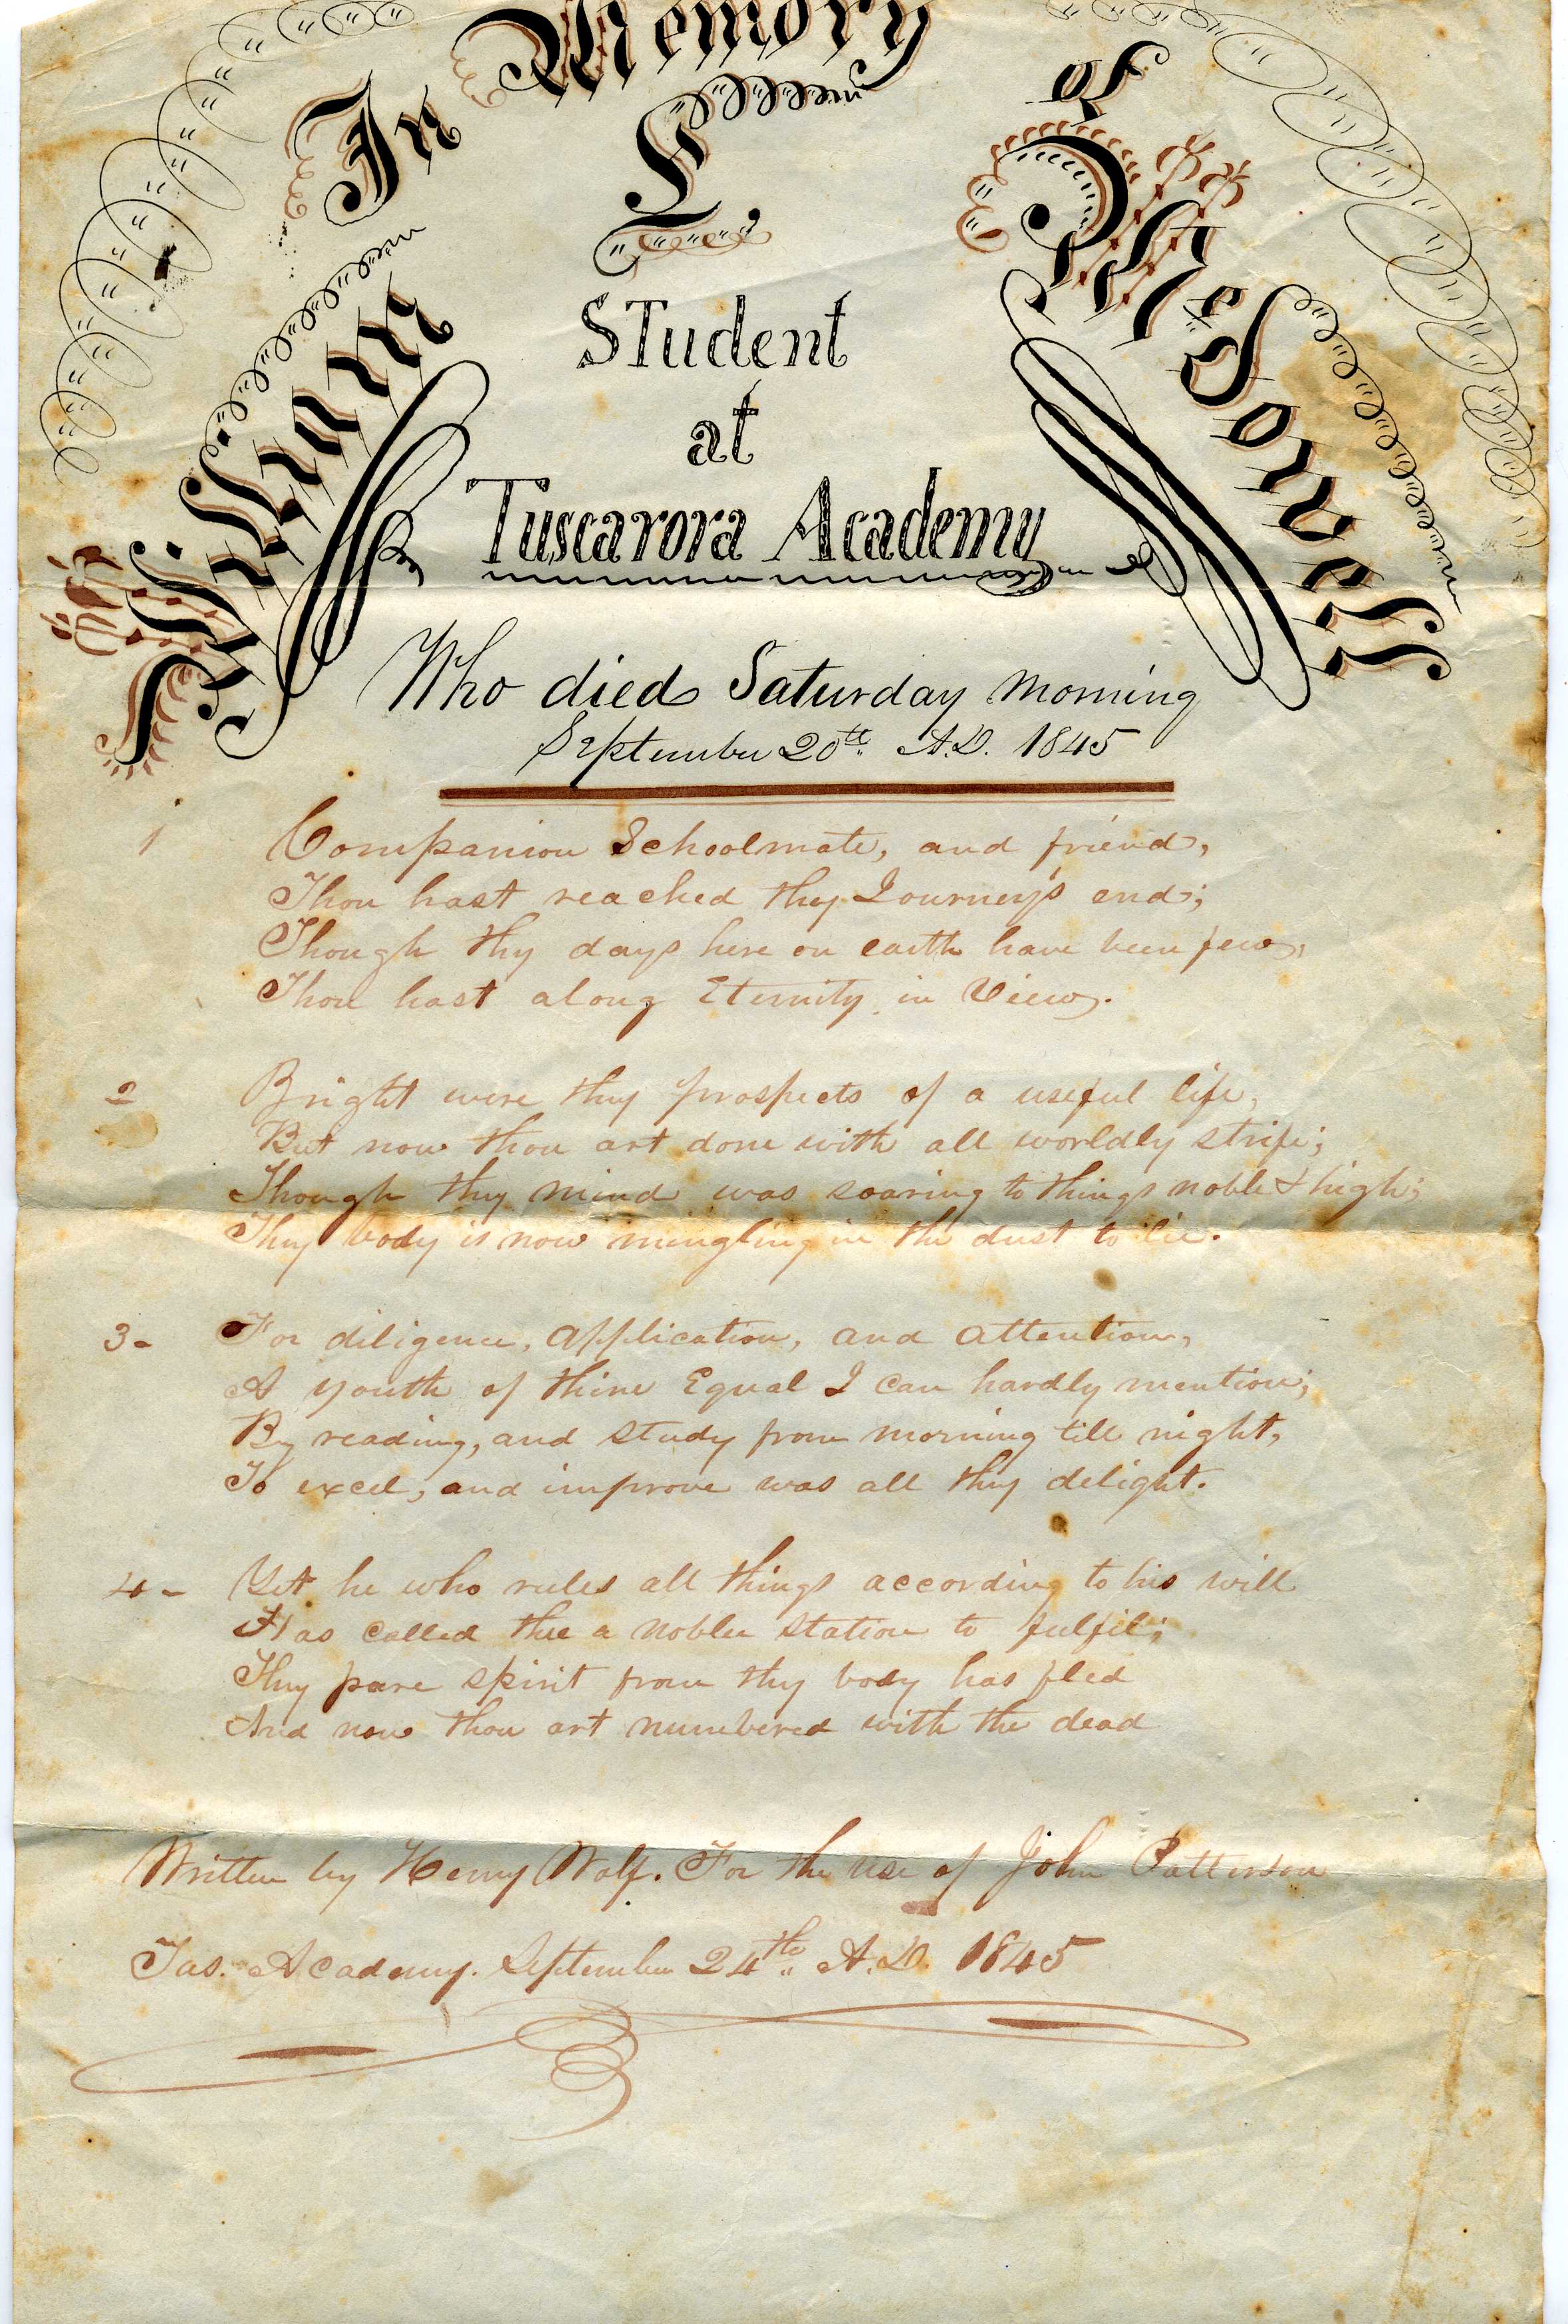 In Memory of
STudent
at
Tuscarora Academy
Who died Saturday morning
September 20th A.D. 1845
1 Companion Schoolmate, and friend,
Thou hast reached thy Journey's end;
Though thy days here on earth have been few,
Thou hast along Eternity in View.
2 Bright were thy prospects of a useful life,
But now thou art done with all worldly strife;
Though thy mind was soaring to things noble & high;
Thy body is now mingling in the dust to lie.
3- For diligence, application, and attention,
A youth of thine Equal I can hardly mention;
By reading, and study from morning till night,
To excel, and improve was all thy delight.
4- Yet he who rules all things according to his will
Has called thee a nobler station to fulfil;
Thy pure spirit from thy body has fled
And now thou art numbered with the dead
Written by Henry Wolf. For the use of John Patterson
Tus. Academy. September 24th A.D. 1845